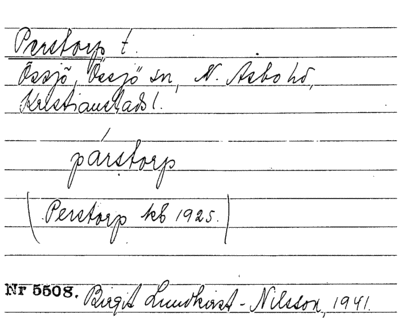 Perstorp t.
Össjö, Össjö sn, N. Åsbo hd,
Kristianstads l.
párstorp
(Perstorp kb 1925.)
Nr 5508. Birgit Lundkvist-Nilsson, 1941.